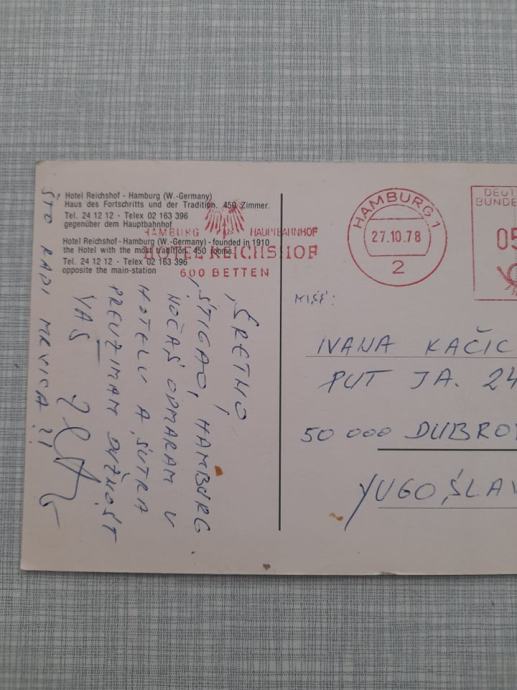 Hotel Reichshof - Hamburg (W.-Germany)
Haus des Fortschritts und der Tradition. 450 Zimmer.
Tel. 24 12 12 - Telex 02 163 396
gegenüber dem Hauptbahnhof
Hotel Reichshof - Hamburg (W.-Germany) - founded in 1910
the Hotel with the most tradition. 450 rooms
Tel. 24 12 12 - Telex 02 163 396
opposite the main-station
HAMBURG HAUPTBAHNHOF
HOTEL REICHSHOF
600 BETTEN
HAMBURG 1
27.10.78
2
DEUT
BUNDE
05
SRETNO
STIGAO, HAMBURG
NOĆAS ODMARAM U
HOTELU A SUTRA
PREUZIMAM DUŽNOST
VAŠ
ŠTO RADI MRVICA?!
IVANA KAČIC
PUT JA. 24
50 000 DUBRO
YUGOSLAV